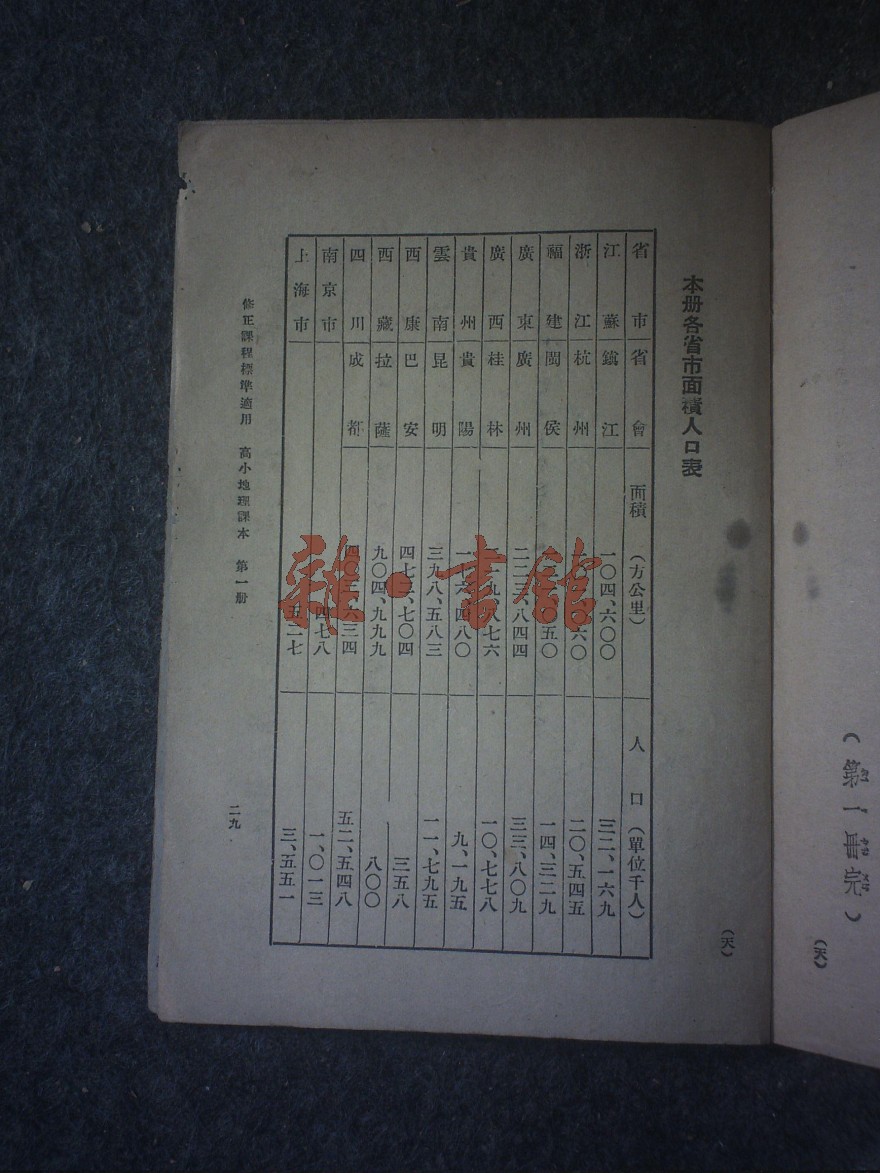 本册各省市面積人口表
省市 省會 面積（方公里） 人口（單位千人）
江蘇 鎮江 一〇四、六〇〇 三二、一六九
浙江 杭州 二〇、五四五
福建 閩侯 一四、三二九
廣東 廣州 三三、八〇九
廣西 桂林 一〇、七七八
貴州 貴陽 九、一九五
雲南 昆明 三九八、五八三 一一、七九五
西康 巴安 三五八
西藏 拉薩 九〇四、九九九 八〇〇
四川 成都 五二、五四八
南京市 四七八 一、〇一三
上海市 五二七 三、五五一
修正課程標準適用 高小地理課本 第一册
二九
（天）
（第一冊完）
（天）
雜·書館